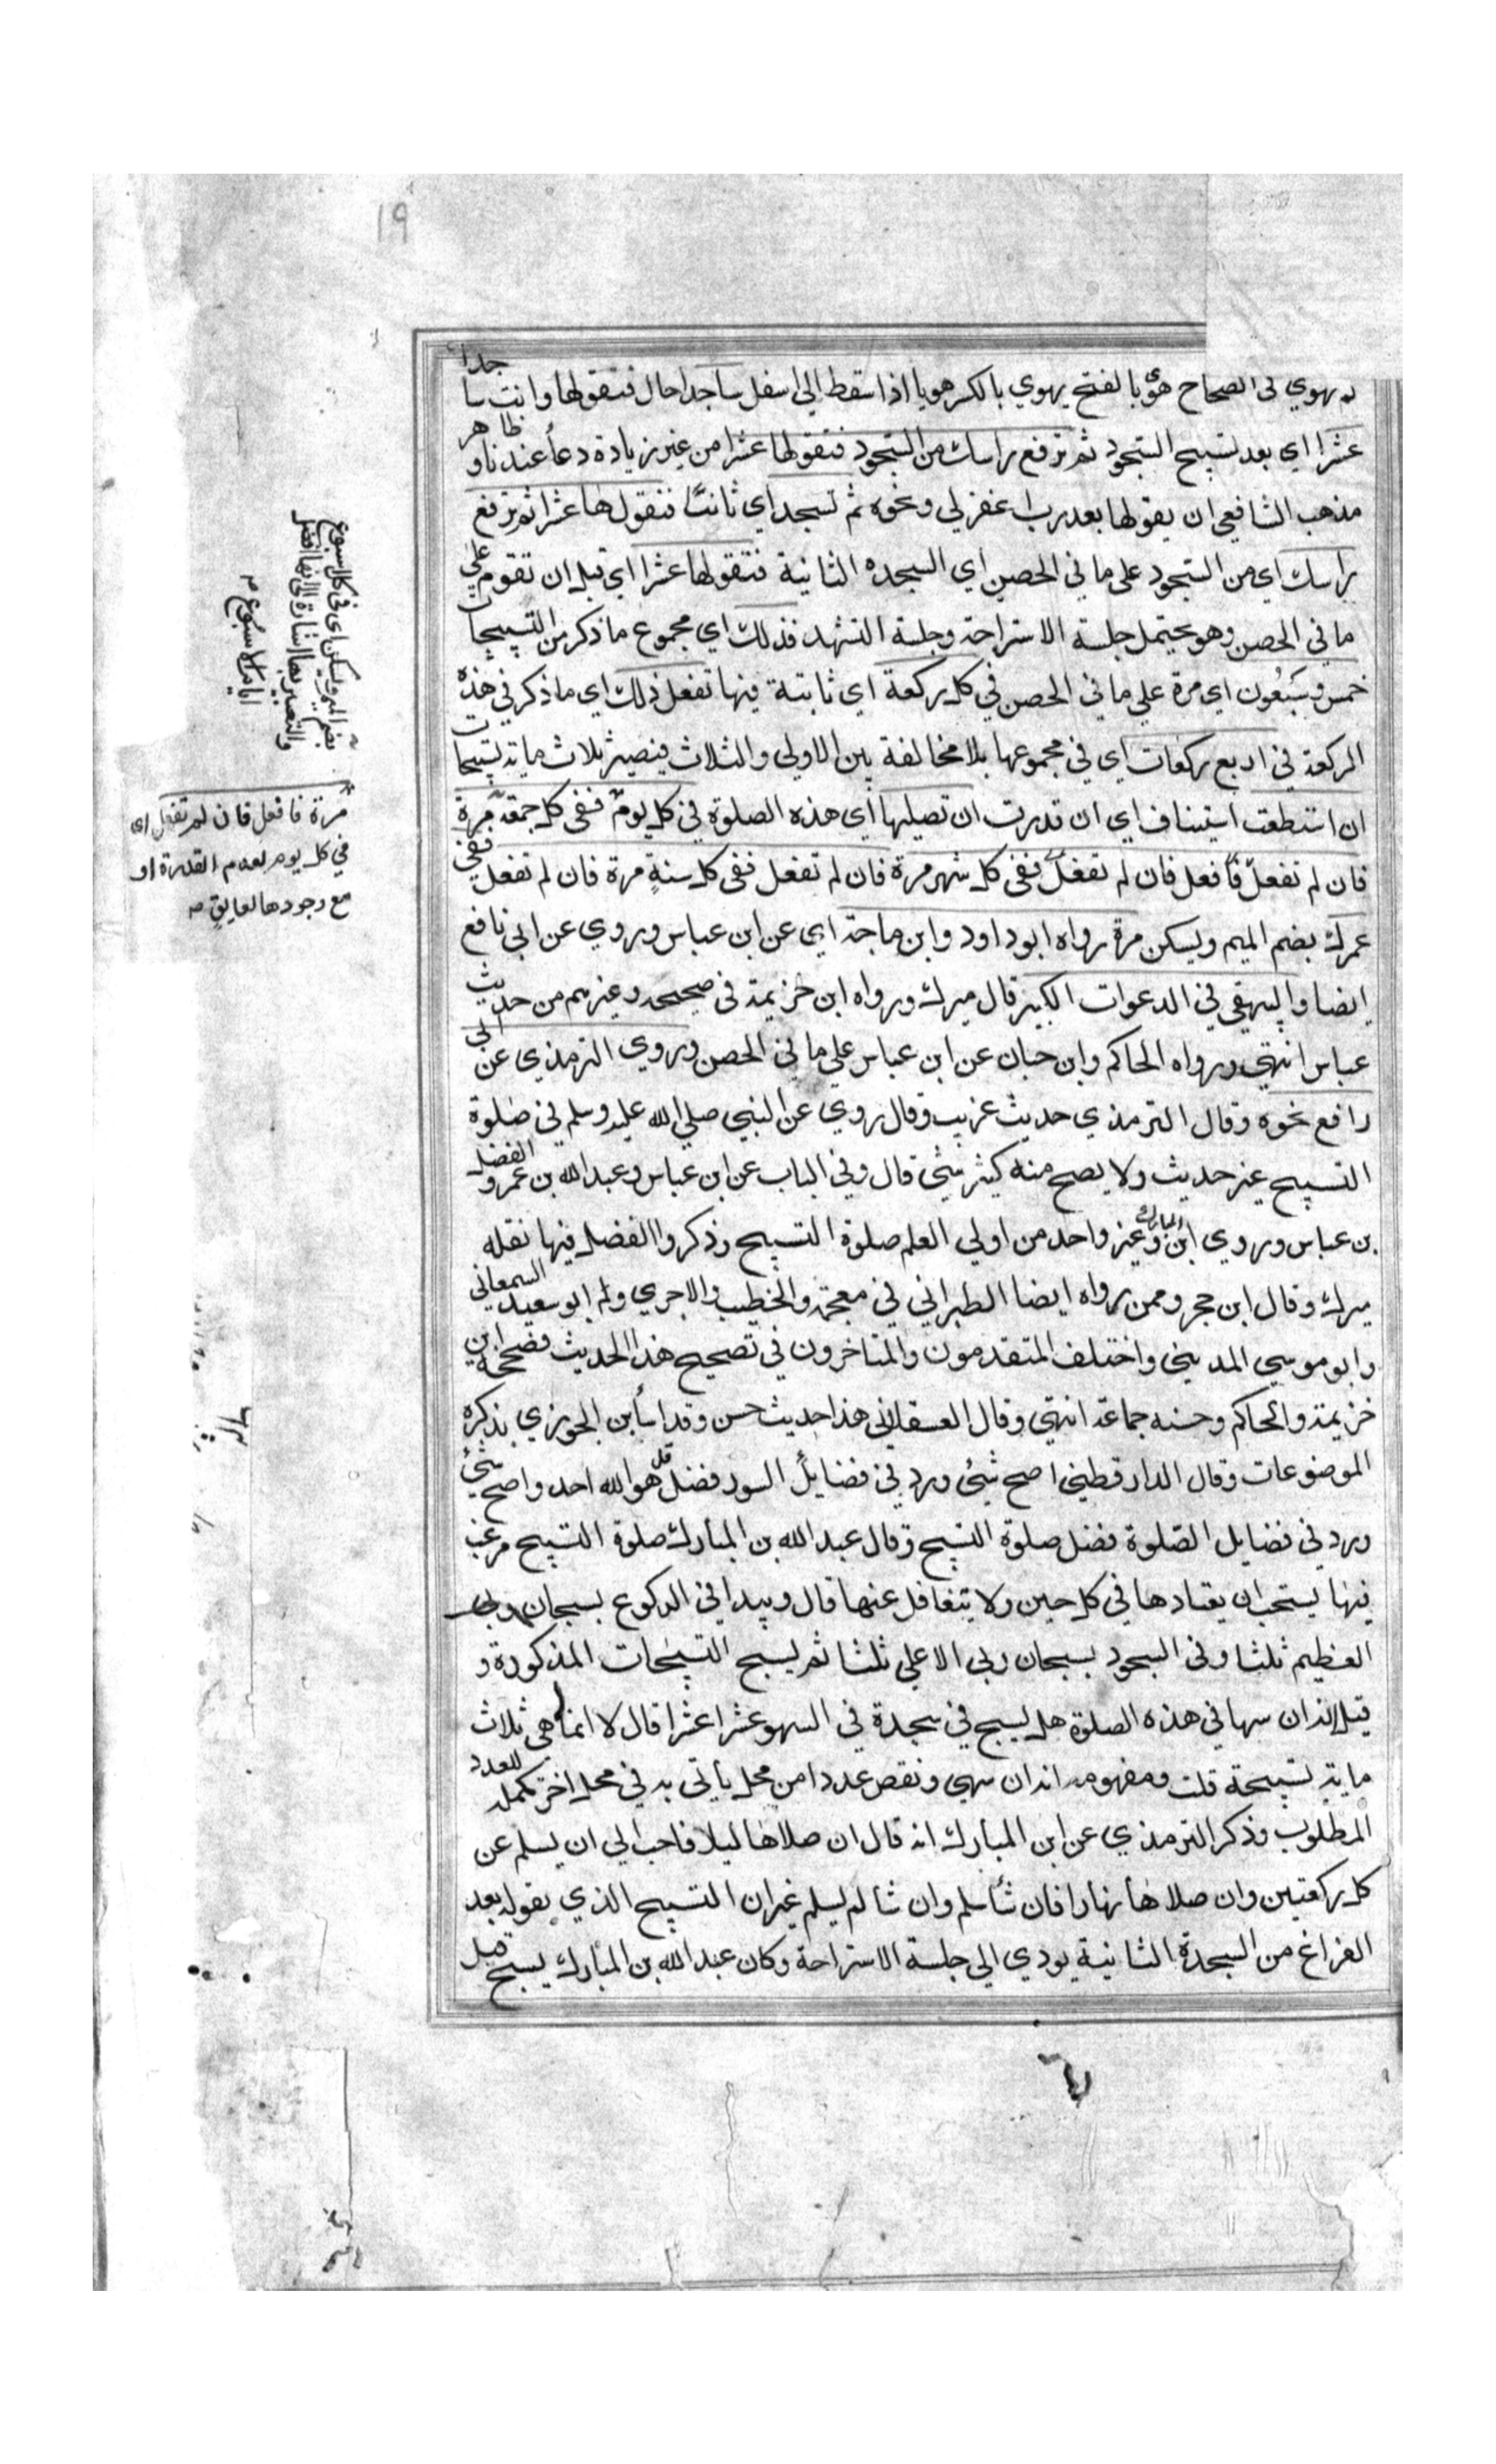 19
يهوي في الصحاح هوى بالفتح يهوي بالكسر هويا اذا سقط الي اسفل ساجدا حال فتقولها وانت ساجدا
عشرا اي بعد تسبيح السجود ثم ترفع راسك من السجود فتقولها عشرا من غير زيادة دعأ عندنا و ظاهر
مذهب الشافعي ان يقولها بعد رب اغفر لي ونحوه ثم تسجد اي ثانيا فتقولها عشرا ثم ترفع
راسك اي من السجود علي ما في الحصن اي السجده الثانية فتقولها عشرا اي قبل ان تقوم علي
ما في الحصن وهو يحتمل جلسة الاستراحة وجلسة التشهد فذلك اي مجموع ما ذكر من التسبيحات
خمس وسبعون اي مرة علي ما في الحصن في كل ركعة اي ثابتة فيها تفعل ذلك اي ما ذكر في هذه
الركعة في اربع ركعات اي في مجموعها بلا مخالفة بين الاولي والثلاث فيصير ثلاث ماية تسبيحات
ان استطعت استيناف اي ان قدرت ان تصليها اي هذه الصلوة في كل يوم ففي كل جمعة مرة
فان لم تفعل فافعل فان لم تفعل ففي كل شهر مرة فان لم تفعل ففي كل سنة مرة فان لم تفعل ففي
عمرك بضم الميم ويسكن مرة رواه ابو داود وابن ماجة اي عن ابن عباس وروي عن ابي نافع
ايضا والبيهقي في الدعوات الكبير قال ميرك ورواه ابن خزيمة في صحيحه وغيرهم من حديث
عباس انتهي ورواه الحاكم وابن حبان عن ابن عباس علي ما في الحصن وروي الترمذي عن ابي
رافع نحوه وقال الترمذي حديث غريب وقال روي عن النبي صلي الله عليه وسلم في صلوة
التسبيح غير حديث ولا يصح منه كثير شئ قال وفي الباب عن ابن عباس وعبد الله بن عمرو والفضل
بن عباس وروي ابن المبارك وغير واحد من اولي العلم صلوة التسبيح وذكروا الفضل فيها نقله
ميرك وقال ابن حجر وممن رواه ايضا الطبراني في معجمه والخطيب والاجري وابو سعيد السمعاني
وابو موسي المديني واختلف المتقدمون والمتاخرون في تصحيح هذا الحديث فصححه ابن
خزيمة والحاكم وحسنه جماعة انتهي وقال العسقلاني هذا حديث حسن وقد اسأ ابن الجوزي بذكره
الموضوعات وقال الدارقطني اصح شئ ورد في فضايل السور فضل قل هو الله احد واصح شئ
ورد في فضايل الصلوة فضل صلوة التسبيح وقال عبد الله بن المبارك صلوة التسبيح مرغب
فيها يستحب ان يعتادها في كل حين ولا يتغافل عنها قال ويبدا في الركوع بسبحان ربي
العظيم ثلثا وفي السجود بسبحان ربي الاعلي ثلثا ثم يسبح التسبيحات المذكورة و
قيل له ان سها في هذه الصلوة هل يسبح في سجدة في السهو عشرا عشرا قال لا انما هي ثلاث
ماية تسبيحة قلت ومفهومه انه ان سهي ونقص عددا من محل يأتي به في محل اخر تكملة للعدد
المطلوب وذكر الترمذي عن ابن المبارك انه قال ان صلاها ليلا فاحب الي ان يسلم عن
كل ركعتين وان صلاها نهارا فان شأ سلم وان شا لم يسلم غير ان التسبيح الذي يقوله بعد
الفراغ من السجدة الثانية يودي الي جلسة الاستراحة وكان عبد الله بن المبارك يسبح قبل
بضم الميم ويسكن اي في كل اسبوع
والتعبير بها اشارة الي انها افضل
ايام الاسبوع
مرة فافعل فان لم تفعل اي
في كل يوم لعدم القدرة او
مع وجودها لعايق